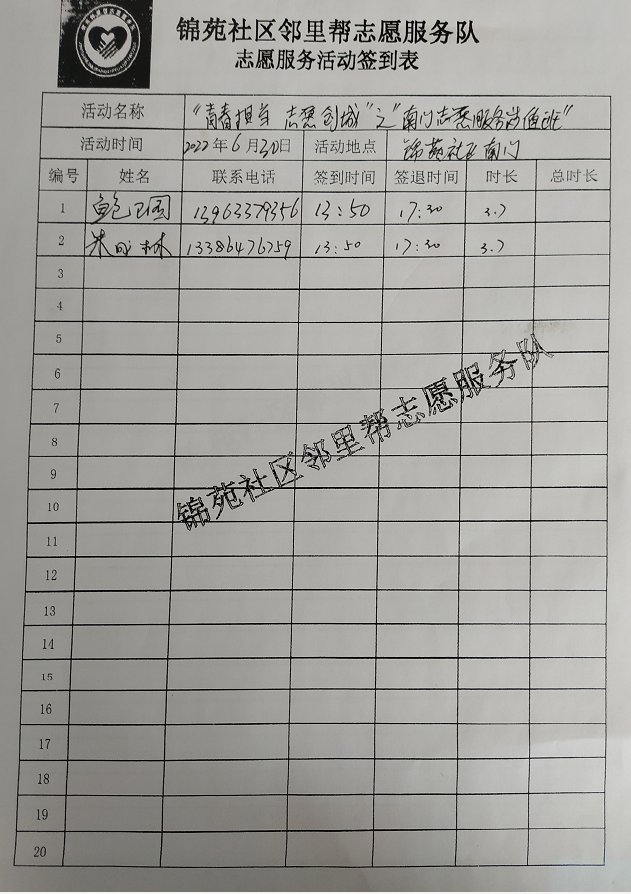 锦苑社区邻里帮志愿服务队
志愿服务活动签到表
活动名称 “青春担当 志愿创城”之“南门志愿服务岗值班”
活动时间 2022年6月30日 活动地点 锦苑社区南门
编号 姓名 联系电话 签到时间 签退时间 时长 总时长
1 鲍卫国 13963379356 13:50 17:30 3.7
2 朱成林 13386476759 13:50 17:30 3.7
3
4
5
6
7
8
9
10
11
12
13
14
15
16
17
18
19
20
锦苑社区邻里帮志愿服务队